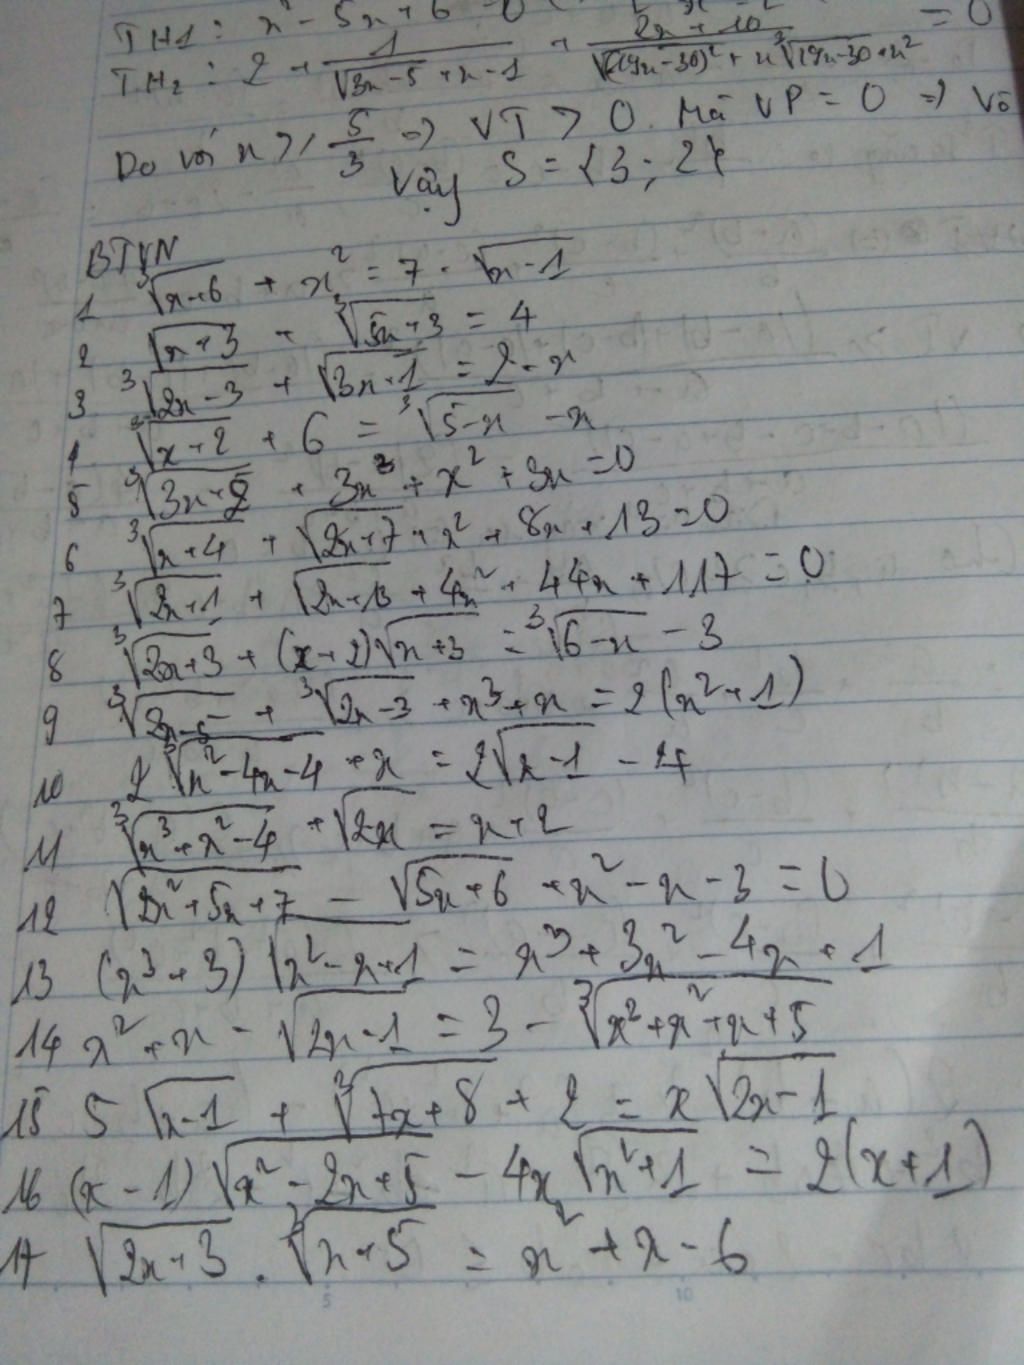 TH1: x² - 5x + 6 = 0
TH₂: 2 + 1/(√(3x-5) + x - 1) + (2x+10)/(∛((19x-30)²) + x∛(19x-30) + x²) = 0
Do với x ≥ 5/3 ⇒ VT > 0. Mà VP = 0 ⇒ Vô
Vậy S = {3; 2}
BTVN
1 ∛(x+6) + x² = 7 - √(x-1)
2 √(x+3) + ∛(5x+3) = 4
3 ∛(2x-3) + √(3x+1) = 2 - x
4 ∛(x+2) + 6 = ∛(5-x) - x
5 ∛(3x+2) + 3x³ + x² + 3x = 0
6 ∛(x+4) + √(2x+7) + x² + 8x + 13 = 0
7 ∛(2x+1) + √(2x+13) + 4x² + 44x + 117 = 0
8 ∛(2x+3) + (x+2)√(x+3) = ∛(6-x) - 3
9 ∛(2x-5) + ∛(2x-3) + x³ + x = 2(x²+1)
10 2∛(x²-4x-4) + x = 2√(x-1) - 4
11 ∛(x³+x²-4) + √(2x) = x + 2
12 √(2x²+5x+7) - √(5x+6) + x² - x - 3 = 0
13 (x³+3)√(x²-x+1) = x³ + 3x² - 4x + 1
14 x² + x - √(2x-1) = 3 - ∛(x²+x²+x+5)
15 5√(x-1) + ∛(7x+8) + 2 = x√(2x-1)
16 (x-1)√(x²-2x+5) - 4x√(x²+1) = 2(x+1)
17 √(2x+3) . ∛(x+5) = x² + x - 6
5 10